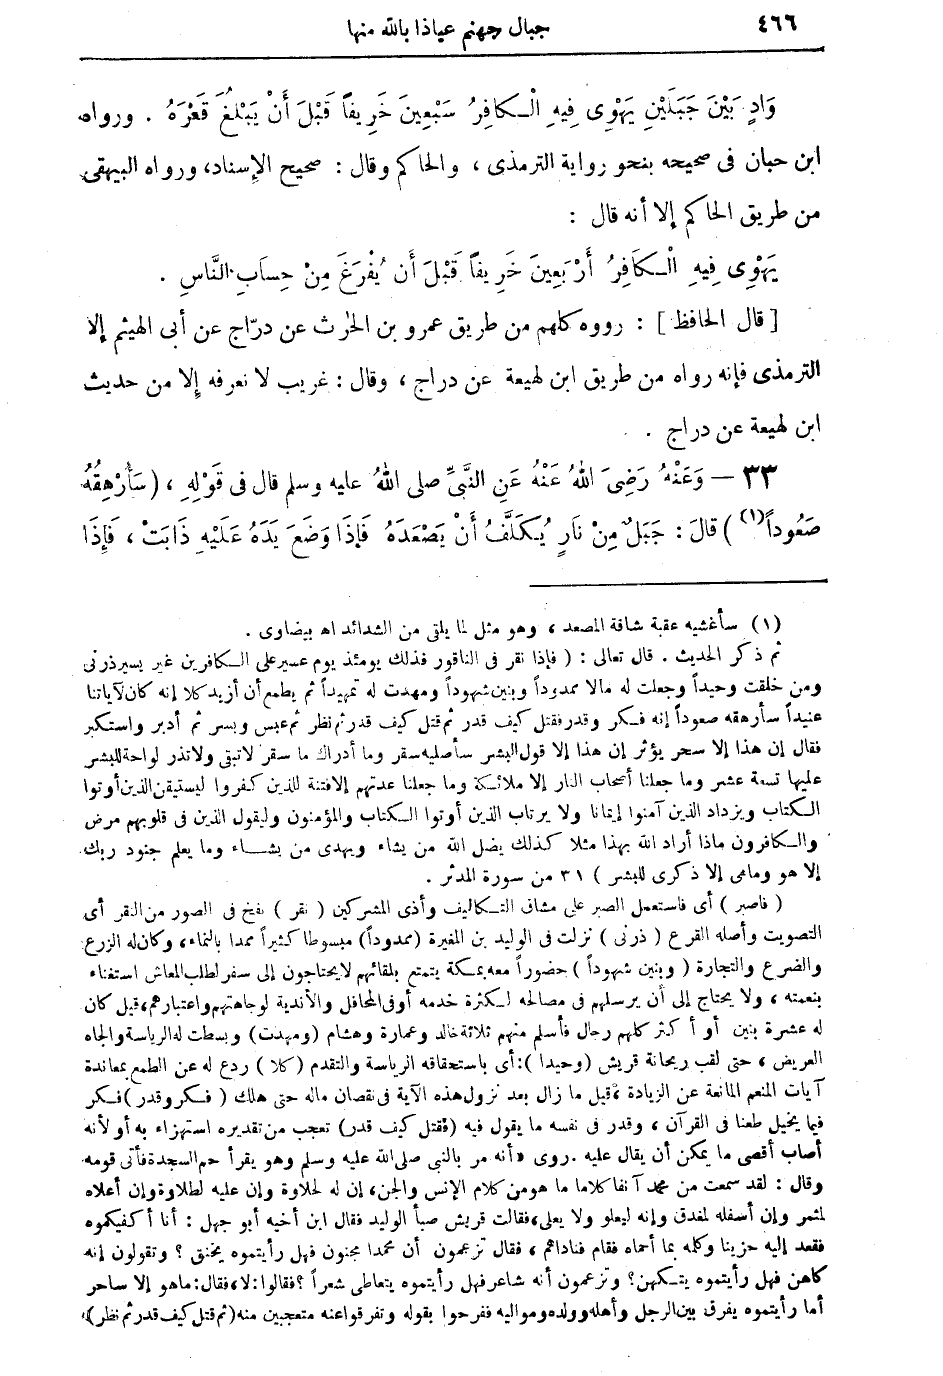 ٤٦٦
جبال جهنم عياذا بالله منها
وَادٍ بَيْنَ جَبَلَيْنِ يَهْوِى فِيهِ الْـكَافِرُ سَبْعِينَ خَرِيفاً قَبْلَ أَنْ يَبْلُغَ قَعْرَهُ . ورواه
ابن حبان فى صحيحه بنحو رواية الترمذى ، والحاكم وقال : صحيح الإسناد، ورواه البيهقى
من طريق الحاكم إلا أنه قال :
يَهْوِى فِيهِ الْـكَافِرُ أَرْبَعِينَ خَرِيفاً قَبْلَ أَن يُفْرَغَ مِنْ حِسَابِ النَّاسِ .
[ قال الحافظ ] : رووه كلهم من طريق عمرو بن الحٰرث عن درّاج عن أبى الهيثم إلا
الترمذى فإنه رواه من طريق ابن لهيعة عن دراج ، وقال : غريب لا نعرفه إلا من حديث
ابن لهيعة عن دراج .
٣٣ – وَعَنْهُ رَضِىَ اللهُ عَنْهُ عَنِ النَّبِىِّ صلى اللهُ عليه وسلم قال فى قَوْلِهِ ، (سَأُرْهِقُهُ
صَعُوداً(١)) قالَ : جَبَلٌ مِنْ نَارٍ يُـكَلَّفُ أَنْ يَصْعَدَهُ فَإِذَا وَضَعَ يَدَهُ عَلَيْهِ ذَابَتْ ، فَإِذَا
(١) سأغشيه عقبة شاقة المصعد ، وهو مثل لما يلقى من الشدائد اه بيضاوى .
ثم ذكر الحديث . قال تعالى : ( فإذا نقر فى الناقور فذلك يومئذ يوم عسير على الـكافرين غير يسير ذرنى
ومن خلقت وحيداً وجعلت له مالا ممدوداً وبنين شهوداً ومهدت له تمهيداً ثم يطمع أن أزيد كلا إنه كان لآياتنا
عنيداً سأرهقه صعوداً إنه فـكر وقدر فقتل كيف قدر ثم قتل كيف قدر ثم نظر ثم عبس وبسر ثم أدبر واستكبر
فقال إن هذا إلا سحر يؤثر إن هذا إلا قول البشر سأصليه سقر وما أدراك ما سقر لا تبقى ولا تذر لواحة للبشر
عليها تسعة عشر وما جعلنا أصحاب النار إلا ملائـكة وما جعلنا عدتهم إلا فتنة للذين كفروا ليستيقن الذين أوتوا
الـكتاب ويزداد الذين آمنوا إيمانا ولا يرتاب الذين أوتوا الـكتاب والمؤمنون وليقول الذين فى قلوبهم مرض
والـكافرون ماذا أراد الله بهذا مثلا كذلك يضل الله من يشاء ويهدى من يشـــاء وما يعلم جنود ربك
إلا هو وما هى إلا ذكرى للبشر ) ٣١ من سورة المدثر .
( فاصبر ) أى فاستعمل الصبر على مشاق التـكاليف وأذى المشركين ( نقر ) نفخ فى الصور من النقر أى
التصويت وأصله القرع ( ذرنى ) نزلت فى الوليد بن المغيرة (ممدوداً) مبسوطا كثيراً ممدا بالنماء، وكان له الزرع
والضرع والتجارة ( وبنين شهوداً ) حضوراً معه بمـكة يتمتع بلقائهم لا يحتاجون إلى سفر لطلب المعاش استغناء
بنعمته ، ولا يحتاج إلى أن يرسلهم فى مصالحه لـكثرة خدمه أو فى المحافل والأندية لوجاهتهم واعتبارهم، قيل كان
له عشرة بنين أو أكثر كلهم رجال فأسلم منهم ثلاثة خالد وعمارة وهشام (ومهدت) وبسطت له الرياسة والجاه
العريض ، حتى لقب ريحانة قريش (وحيدا ): أى باستحقاقه الرياسة والتقدم ( كلا ) ردع له عن الطمع بمعاندة
آيات المنعم المانعة عن الزيادة ، قيل ما زال بعد نزول هذه الآية فى نقصان ماله حتى هلك ( فـكر وقدر ) فـكر
فيما يخيل طعنا فى القرآن ، وقدر فى نفسه ما يقول فيه (فقتل كيف قدر) تعجب من تقديره استهزاء به أو لأنه
أصاب أقصى ما يمكن أن يقال عليه . روى «أنه مر بالنبى صلى الله عليه وسلم وهو يقرأ حم السجدة فأتى قومه
وقال : لقد سمعت من محمد آنفا كلاما ما هو من كلام الإنس والجن، إن له لحلاوة وإن عليه لطلاوة وإن أعلاه
لمثمر وإن أسفله لمغدق وإنه ليعلو ولا يعلى، فقالت قريش صبأ الوليد فقال ابن أخيه أبو جهل : أنا أكفيكموه
فقعد إليه حزينا وكله بما أحماه فقام فناداهم ، فقال تزعمون أن محمدا مجنون فهل رأيتموه يخنق ؟ وتقولون إنه
كاهن فهل رأيتموه يتـكهن؟ وتزعمون أنه شاعر فهل رأيتموه يتعاطى شعراً ؟ فقالوا: لا، فقال: ما هو إلا ساحر
أما رأيتموه يفرق بين الرجل وأهله وولده ومواليه ففرحوا بقوله وتفرقوا عنه متعجبين منه (ثم قتل كيف قدر ثم نظر)،